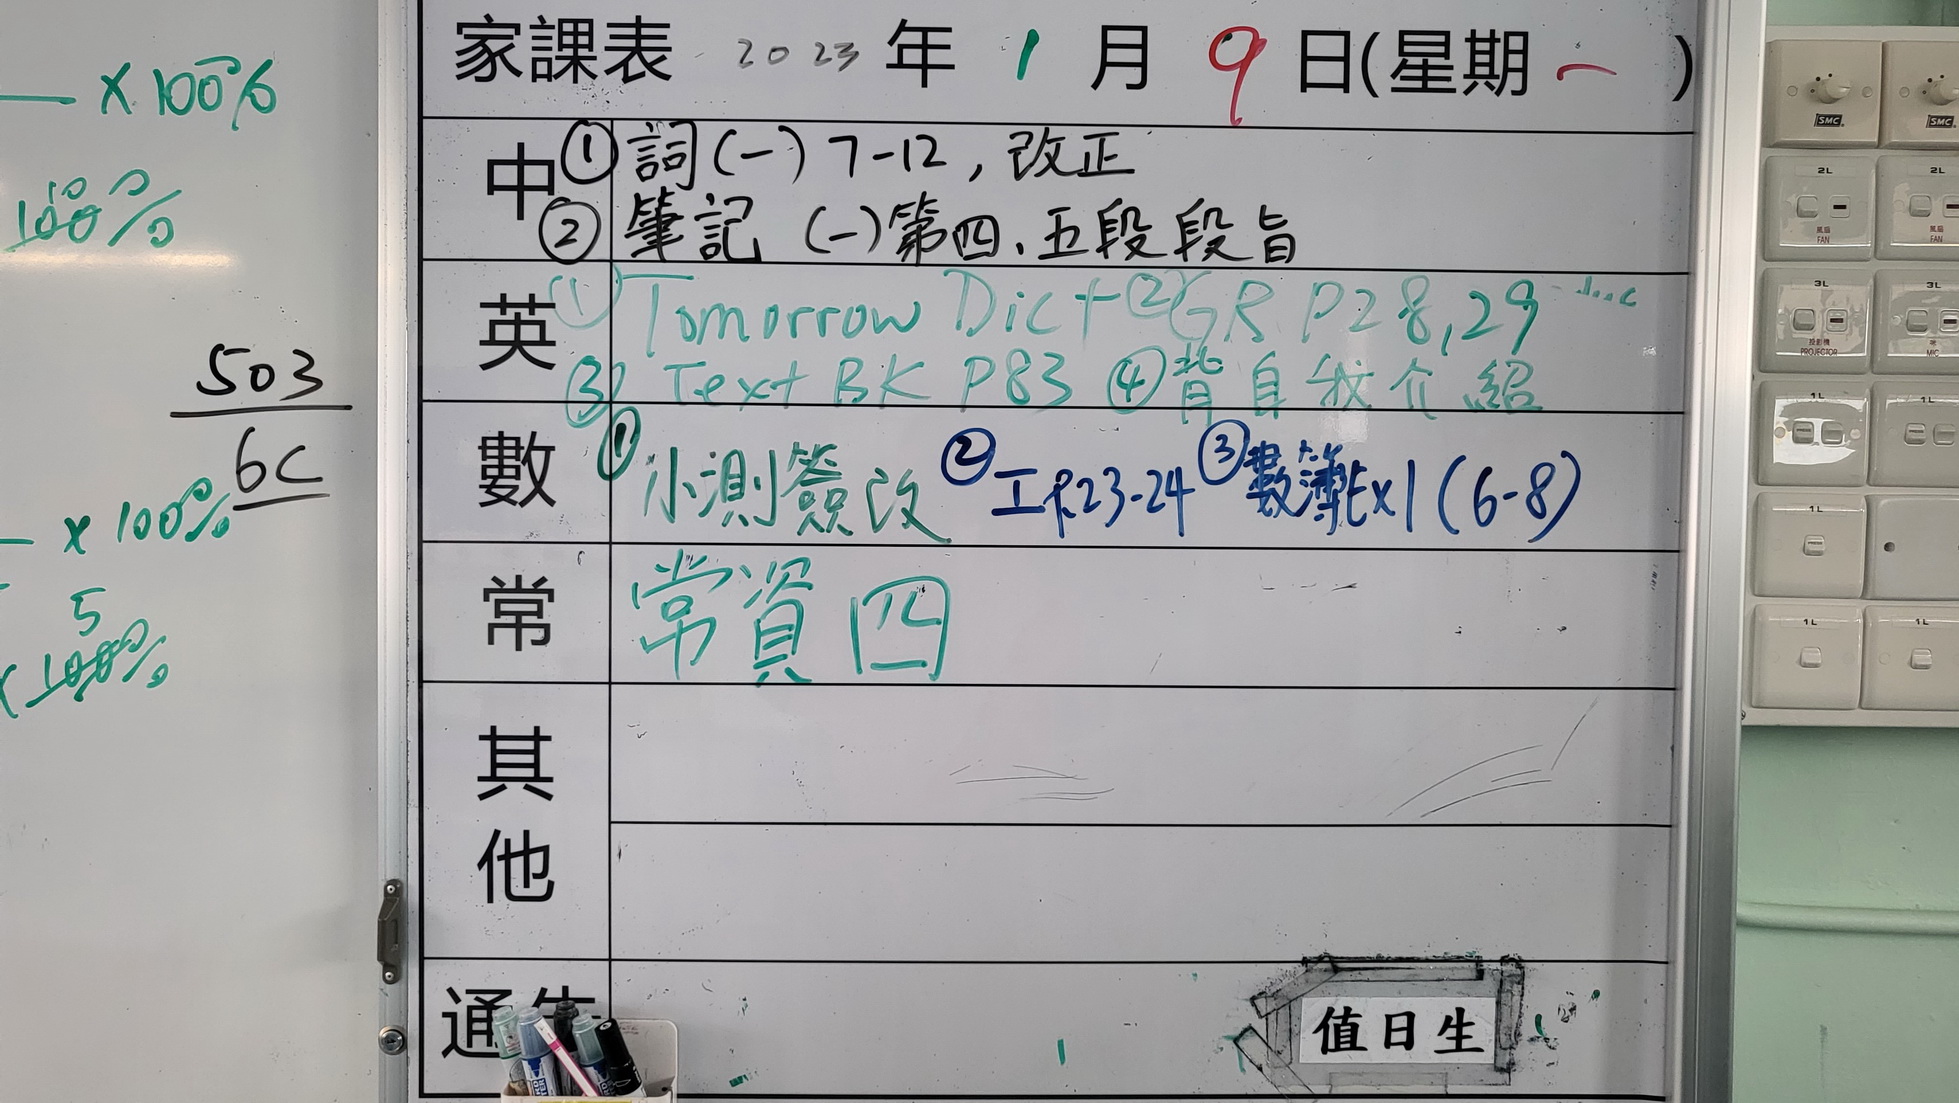 x 100%
10
100%
503
6C
x 100%
5
x 100%
家課表 2023 年 1 月 9 日(星期 一 )
中 ① 詞(一) 7-12, 改正
② 筆記 (一)第四、五段段旨
英 ① Tomorrow Dict ② GR P28,29
③ Text BK P83 ④ 背自我介紹
數 ① 小測簽改 ② 工作23-24 ③ 數簿Ex1 (6-8)
常 常資四
其他
通告
值日生
SMC
SMC
2L
2L
風扇
FAN
FAN
3L
3L
投影機
PROJECTOR
MIC
1L
1L
1L
1L
1L